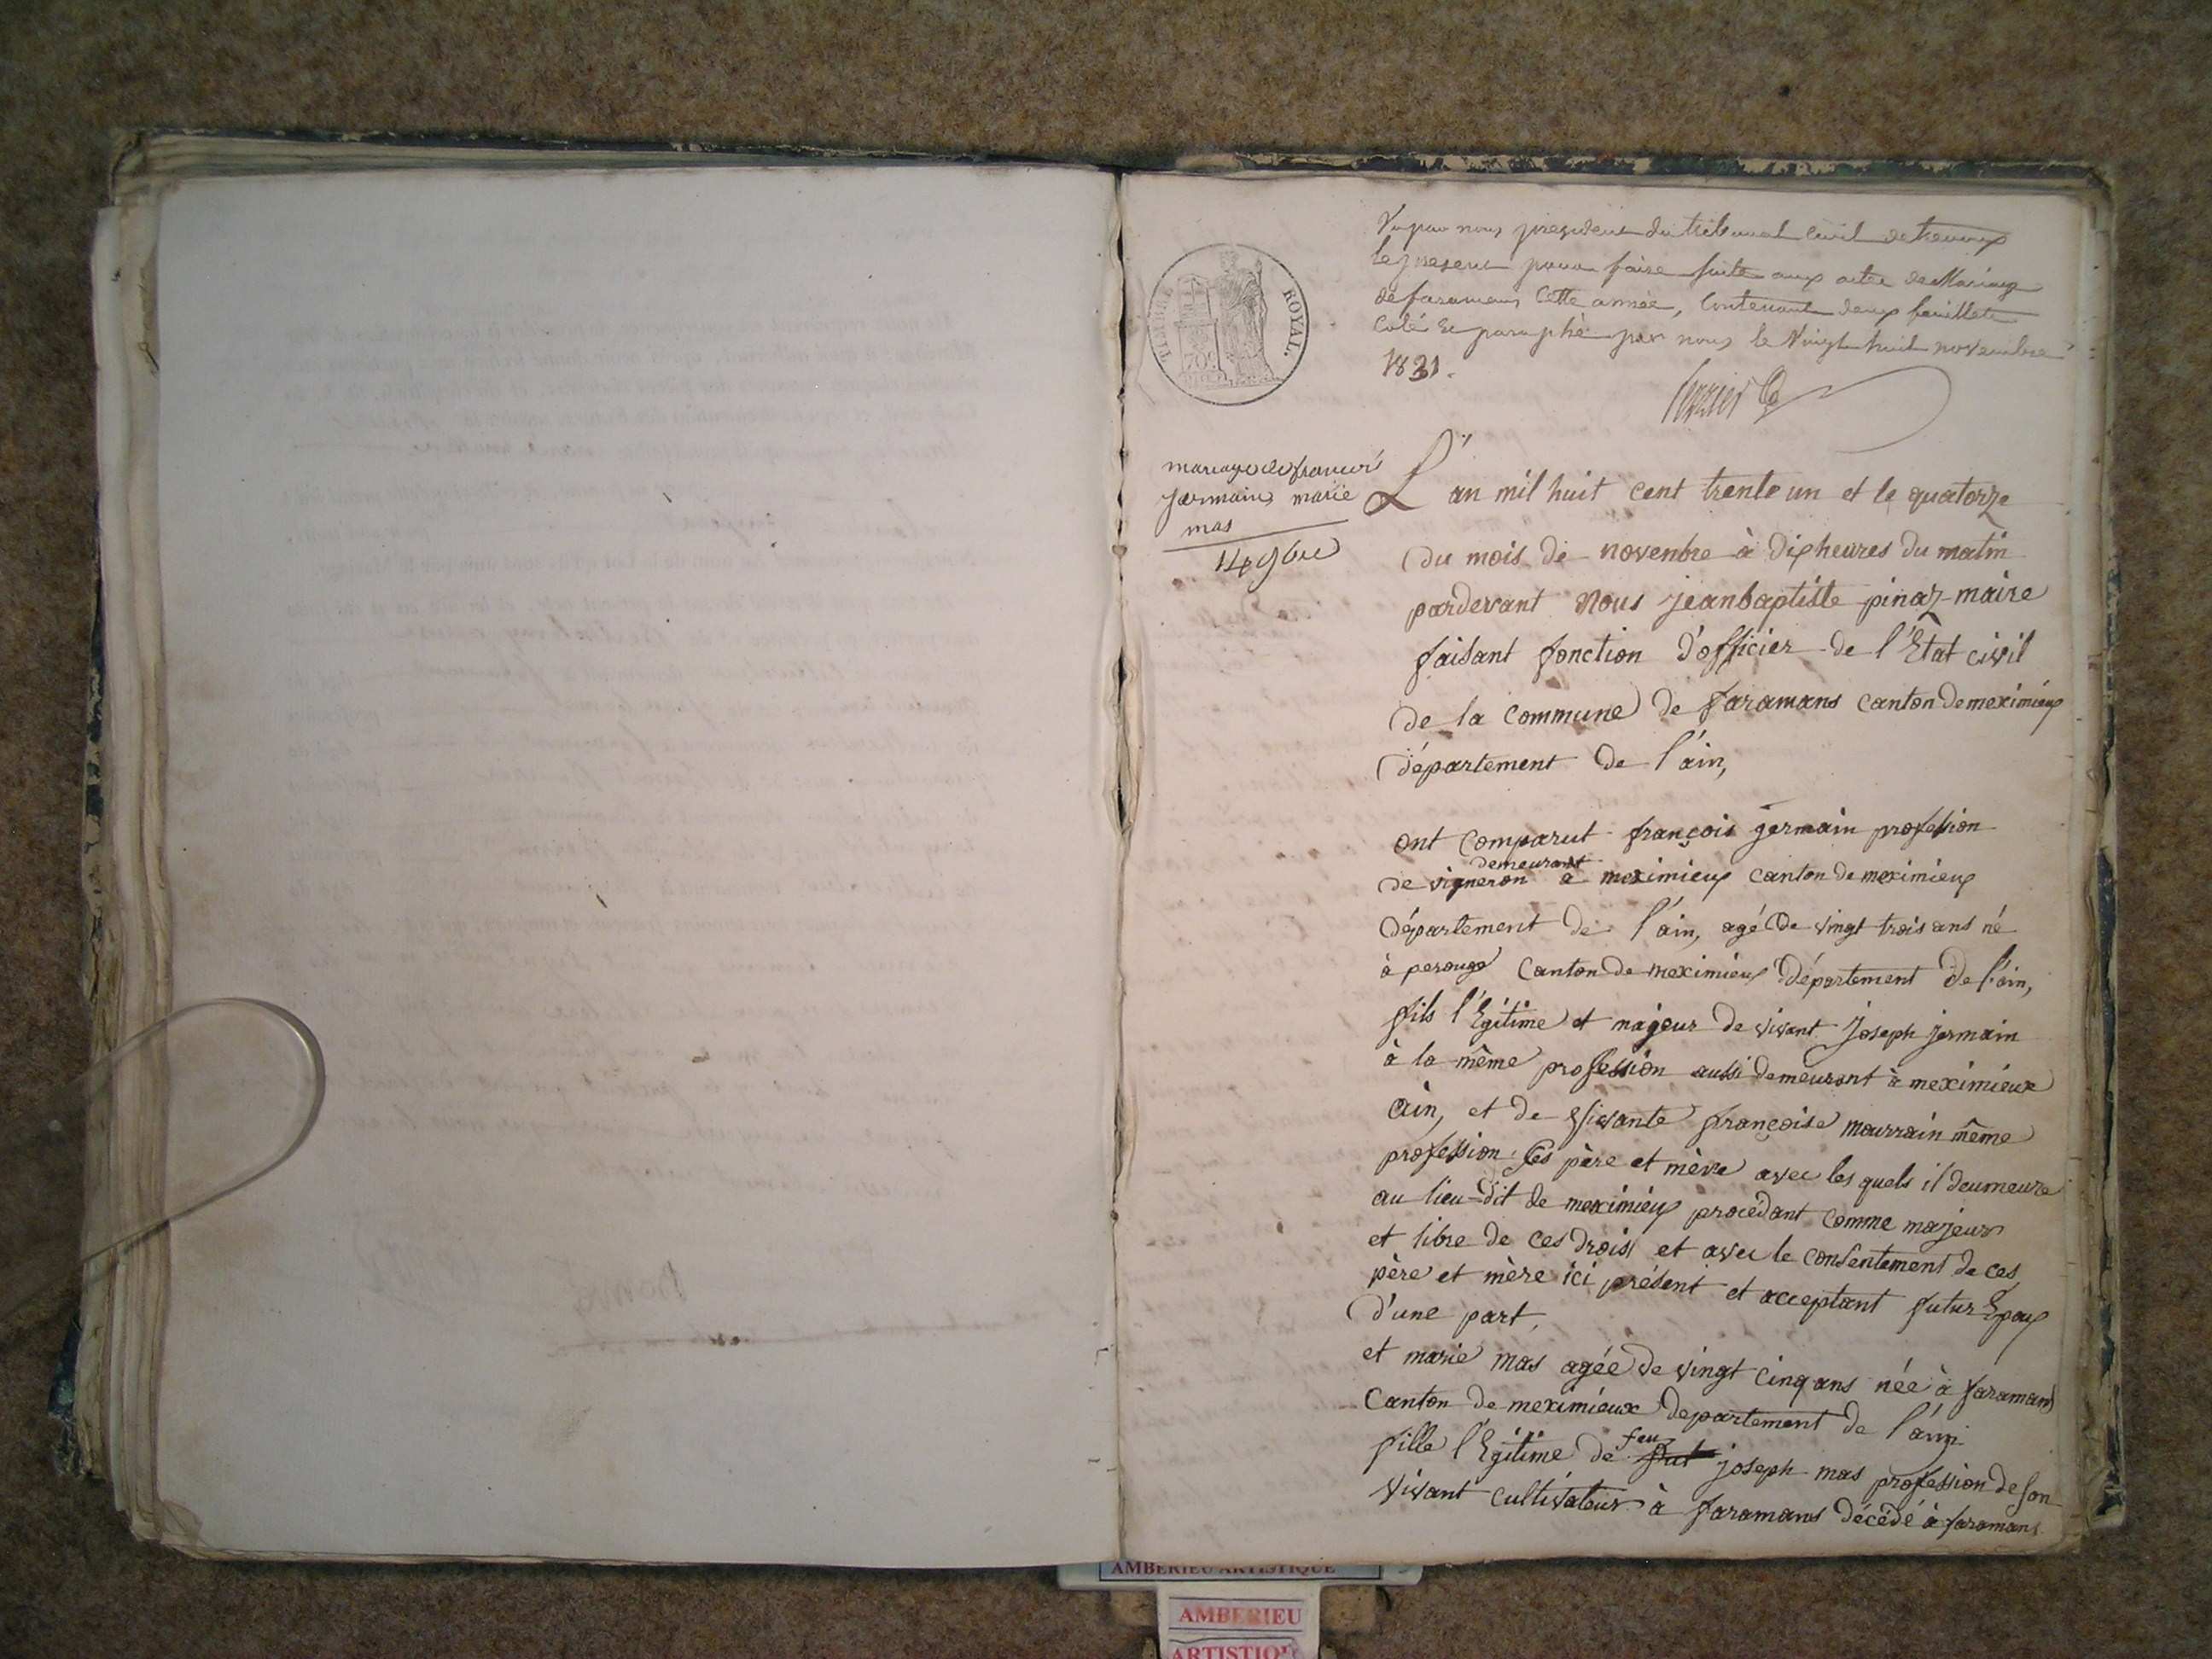 Vu par nous president du tribunal Civil de trevoux
le present pour faire suite aux actes de Mariage
de faramans Cette année, Contenant deux feuillets
Coté et paraphé par nous le Vingt huit novembre
1831.
TIMBRE ROYAL.
70c
mariage de francois
germain, marie
mas
14 9bre
L'an mil huit cent trente un et le quatorze
du mois de novenbre à dix heures du matin
pardevant Nous jeanbaptiste pinaz maire
faisant fonction d'officier de l'Etat civil
de la Commune de faramans Canton de meximieux
département de l'ain,
ont Comparut françois germain profession
de vigneron demeurant a meximieux Canton de meximieux
département de l'ain, agé de vingt trois ans né
à perouge Canton de meximieux département de l'ain,
fils l'Egitime et majeur de vivant Joseph jermain
à la même profession aussi demeurant à meximieux
ain, et de vivante françoise mourrain même
profession ses père et mère avec les quels il deumeure
au lieu-dit de meximieux procédant comme majeur
et libre de ces drois et avec le consentement de ces
père et mère ici présent et acceptant futur Epoux
d'une part,
et marie mas agée de vingt cinq ans née à faramans
Canton de meximieux departement de l'ain
fille l'Egitime de feu joseph mas profession de son
vivant cultivateur à faramans décédé à faramans
AMBERIEU ARTISTIQUE
AMBERIEU
ARTISTIQU